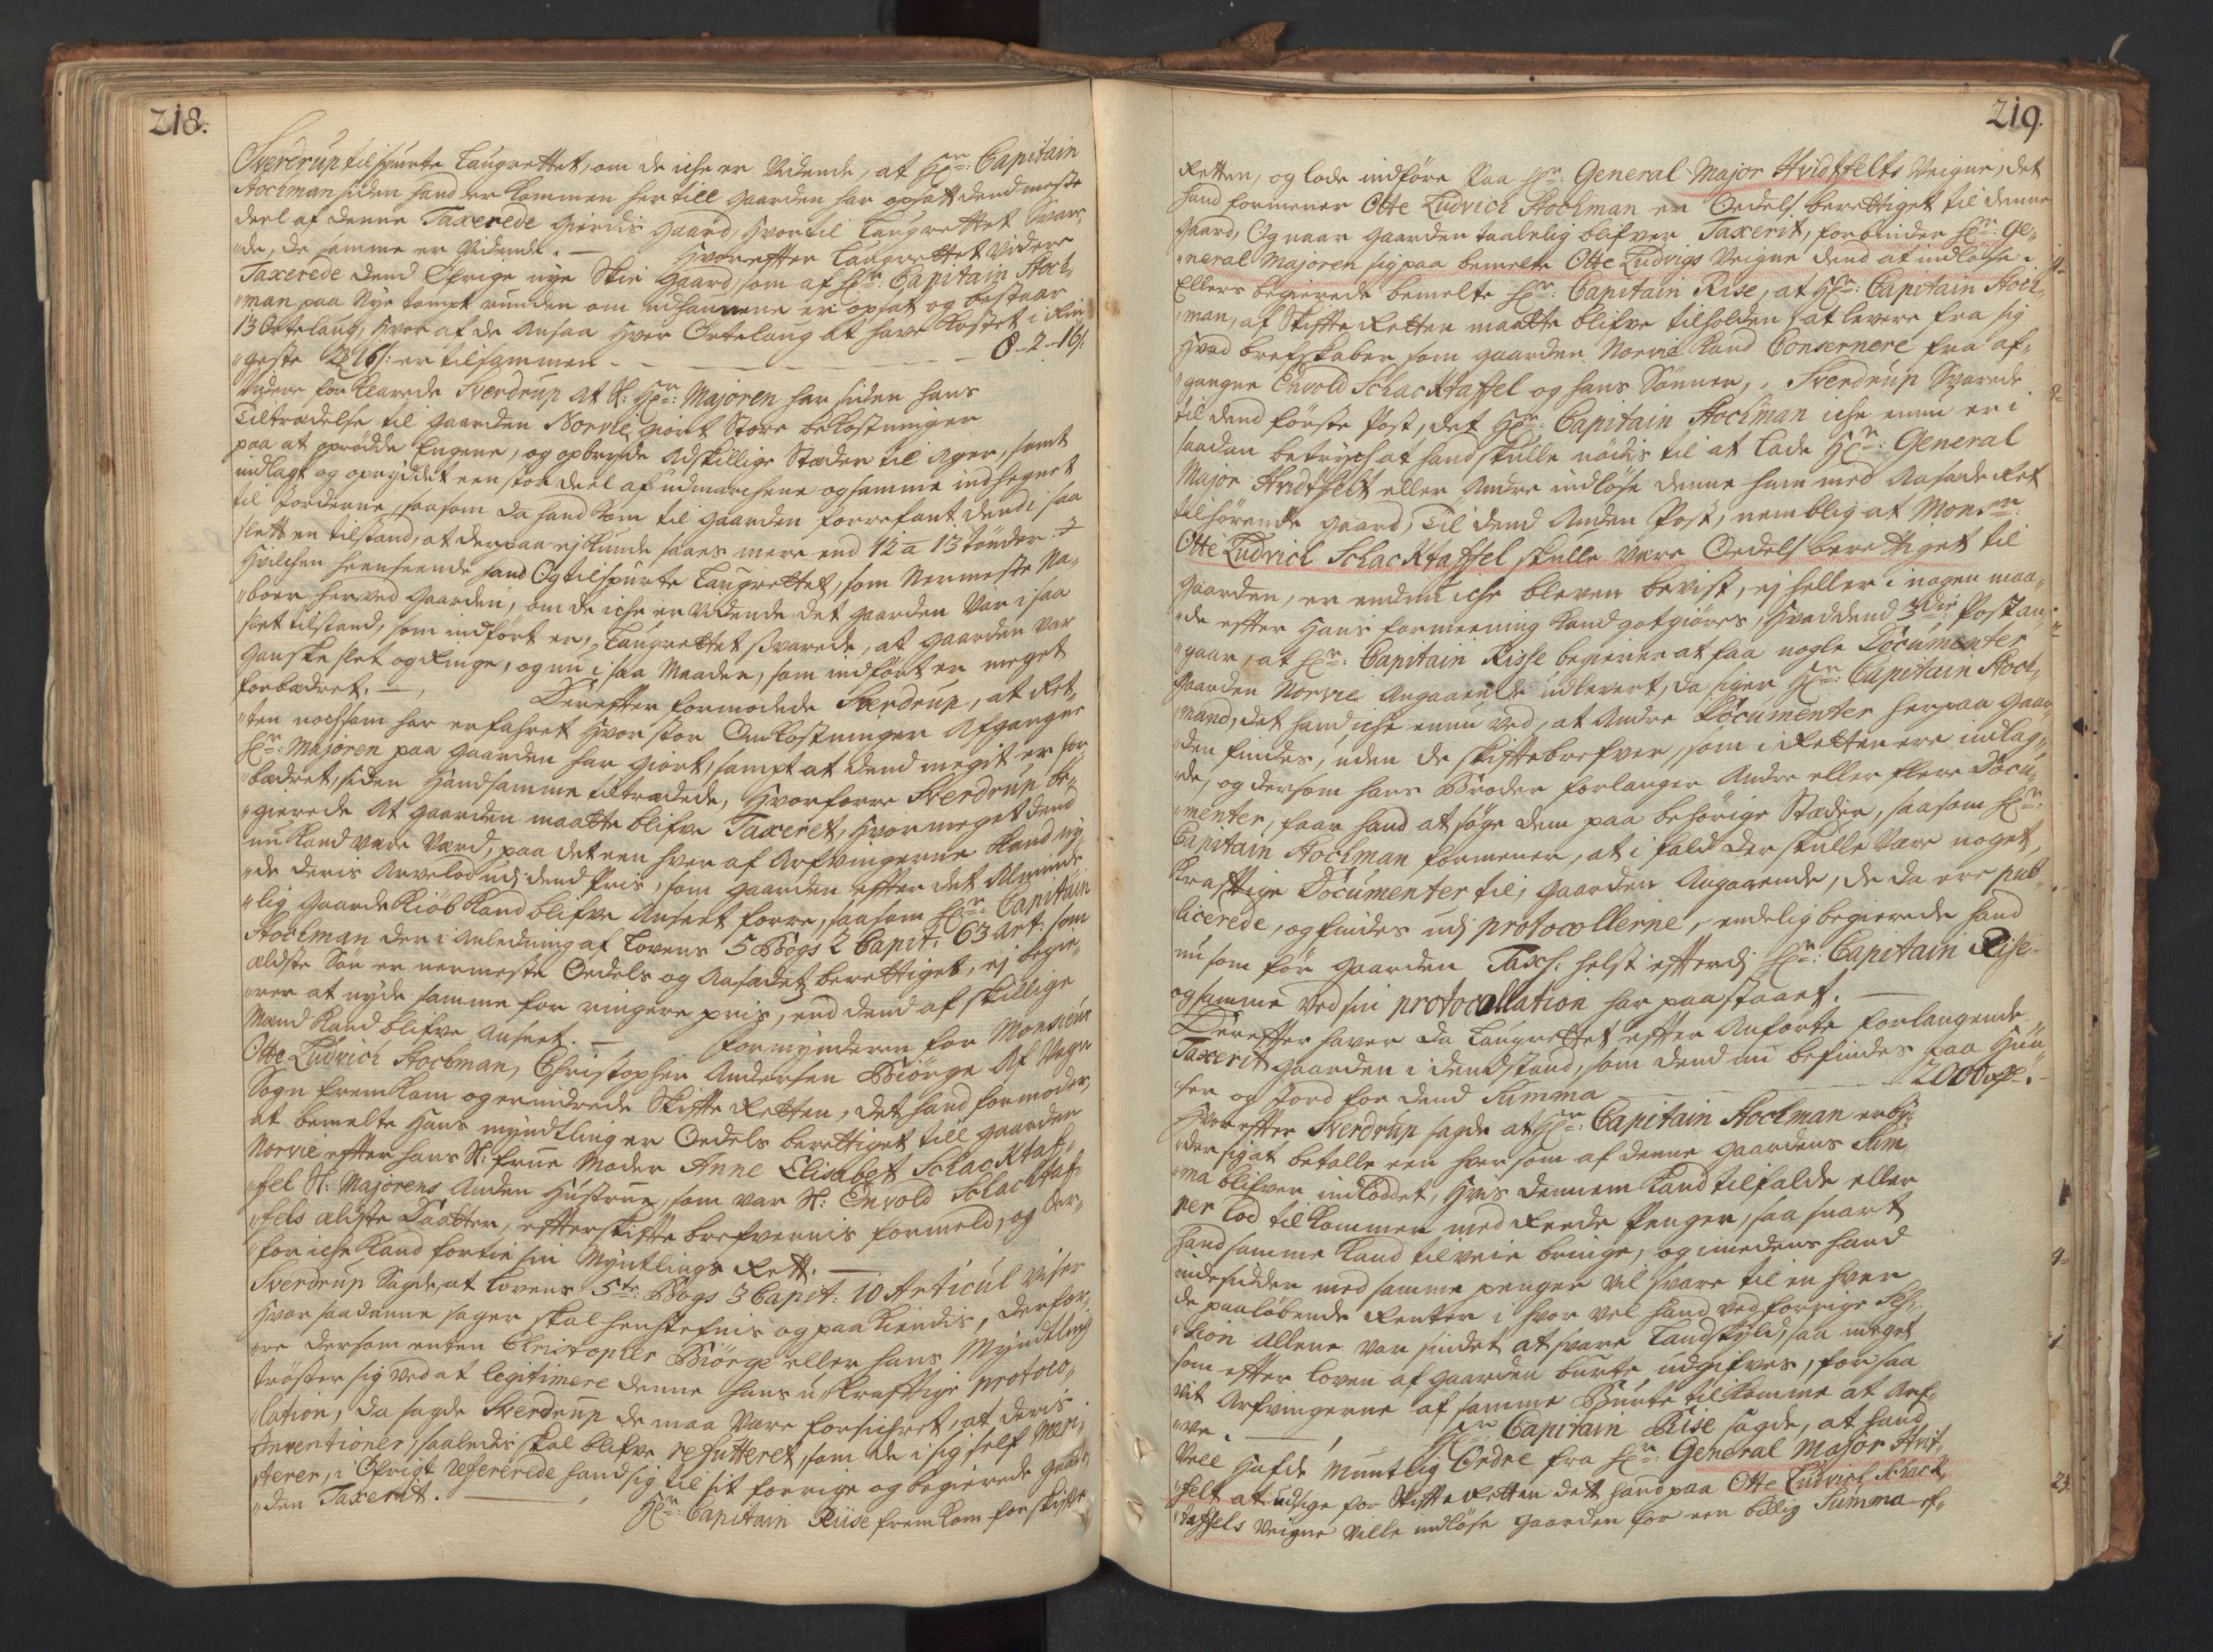 218.
Sverdrup tilspurte Laugrettet, om de iche er vidende, at Hr: Capitain
Stochman siden hand er kommen her till gaarden har opsatt dend meste
deel af denne Taxerede gierdis gaard, hvortil Laugrettet Svar,,
,,de, de samme er vidende. — Hvorefter Laugrettet videre
Taxerede dend Øfrige nye Skie gaard, som af Hr: Capitain Stoch,,
,,man paa Nye tompt runden om udhaunene er opsat og bestaar
13 Ortelaug, hvor af de Ansaa hver Ortelaug at have kostet i Rin
,,geste 2 16 s: er tilsammen - - - 8 - 2 - 16 s:
Videre forklarede Sverdrup at S: Hr: Majoren har siden hans
Tiltrædelse til gaarden Norvie giort Store bekostninger
paa at oprødde Engene, og opbryde Adskillige Stæder til Ager, samt
indlagt og opryddet een stor deel af udmarchene og samme indhegnet
til Jorderne, saasom da hand kom til gaarden forrefant dend i saa
slett en tilstand, at derpaa ej kunde saaes mere end 12 a 13 tønder
hvilchen henseende hand Og tilspurte Laugrettet, som Nermeste Na,,
,,boer her ved gaarden, om de iche er vidende det gaarden var i saa
slet tilstand, som indført er, Laugrettet Svarede, at gaarden var
ganske slet og Ringe, og nu i saa Maader, som indført er meget
forbædret. — Derefter formodede Sverdrup, at Ret,,
,,ten nochsom har erfahret hvor stor Omkostninger Afgangne
Hr: Majoren paa gaarden har giort, sampt at dend megit er for,,
,,bædret, siden hand samme tiltrædede, hvorforre Sverdrup be,,
,,gierede at gaarden maatte blifve Taxeret, hvor meget dend
nu kand være værd, paa det een hver af Arfvingerne kand ny,,
,,de deris Arvelod udj dend Pris, som gaarden efter det Alminde
,,lig gaarde kiøb kand blifve Anseet forre, saasom Hr: Capitain
Stochman der i Anledning af Lovens 5 Bogs 2 Capit: 63 art: som
ældste Søn er nermeste Oedels og Aasædetz berettiget, ej begie,,
,,rer at nyde samme for ringere pris, end dend af skillige
Mænd kand blifve Anseet. — Formynderen for Monsieur
Otte Ludvich Stochman, Christopher Andersen Biørge Af Vega
Sogn fremkom og erindrede Skifte Retten, det hand formoder,
at bemelte hans myndtling er Oedels berettiget till gaarden
Norvie efter hans S: frue Moder Anne Elisabet Schachtaf,,
,,fel S: Majorens Anden hustrue, som var S: Envold Schachtaf,,
,,fels ældste Daatter, efter skifte brefvernis formeld, og der,,
,,for iche kand fortie sin Myntlings Rett. —
Sverdrup Sagde, at Lovens 5te: Bogs 3 Capit: 10 Articul viser
hvor saadanne sager skal henstefnis og paakiendis, derfor,,
,,re dersom enten Christopher Biørge eller hans Myndtling
trøster sig ved at legitimere denne hans u-kraftige protoco,,
,,lation, da sagde Sverdrup de maa være forsichret, at deris
Inventioner, saaledis skal blifve refutteret, som de i sig self Meri,,
,,terer, i Øfrigt refererede hand sig til sit forrige og begierede gaar,,
,,den Taxeret. — Hr: Capitain Riise fremkom for skifte
219.
Retten, og lode indføre Paa Hr: General-Major Hvidtfelts Veigne, det
hand formener Otte Ludvich Stochman er Oedels berettiget til denne
gaard, Og naar gaarden taalelig blifver Taxerit, forbinder Hr: Ge,,
,,neral Majoren sig paa bemelte Otte Ludvigs Veigne dend at indløse.
Ellers begierede bemelte Hr: Capitain Rise, at Hr: Capitain Stoch,,
,,man, af Skifte Retten maatte blifve tilholden at levere fra sig
hvad brefskaber som gaarden Norvie kand Consernere fra af,,
,,gangne Envold Schacktaffel og hans Sønner, Sverdrup Svarede
til dend første Post, det Hr: Capitain Stochman iche ennu er i
saadan betryck at hand skulle nødis til at lade Hr: General
Major Hvidtfelt eller Andre indløse denne ham med Aasæde Ret
tilhørende gaard, Til dend Anden Post, nemblig at Monsr:
Otte Ludvich Schacktaffel skulle være Oedels berettiget til
gaarden, er endnu iche bleven bevist, ej heller i nogen maa,,
,,de efter hans formeening kand gotgiøres, hvad dend 3die Post an,,
,,gaar, at Hr: Capitain Risse begierer at faa nogle Documenter
gaarden Norvie Angaaende udlevert, da siger Hr: Capitain Stoch,,
,,mand, det hand iche ennu ved, at Andre Documenter her paa gaar,,
,,den findes, uden de skiftebrefver, som i Retten ere indlag,,
,,de, og dersom hans Broder forlanger Andre eller flere Docu,,
,,menter, faar hand at søge dem paa behørige Stæder, saasom Hr:
Capitain Stochman formener, at i fald der skulle være noget
kraftige Documenter til, gaarden Angaaende, de da ere pub,,
,,licerede, og findes udj protocollerne, endelig begierede hand
nu som før gaarden Taxt. helst efterdj Hr: Capitain Rise
og samme ved sin protocollation har paastaaet. —
Derefter haver da Laugrettet efter Anførte forlangende
Taxerit gaarden i den stand, som dend nu befindes paa huu,,
,,ser og Jord for dend Summa - - - 200 rdr.
Hvorefter Sverdrup sagde at Hr: Capitain Stochman erby,,
,,der sig at betalle een hver som af denne gaardens Sum,,
,,ma blifver indloddet, hvis dennem kand tilfalde eller
per Lod tilkommer med Reede Penger, saa snart
hand samme kand tilveie bringe, og imedens hand
indesidder med samme penger vil svare til en hver
de paaløbende Renter i hvor vel hand ved forrige Ses,,
,,sion allene var sindet at svare Landskyld, saa meget
som efter loven af gaarden burte udgifves, for saa
vit Arfvingerne af samme burte tilkomme at Arf,,
,,ve. — Hr Capitain Rise sagde, at hand
vell hafde Muntlig Ordre fra Hr: General Major Hvit,,
,,felt at udsige for Skifte Retten det hand paa Otte Ludvich Schack,,
,,taffels Veigne ville indløse gaarden for een billig Summa ef,,